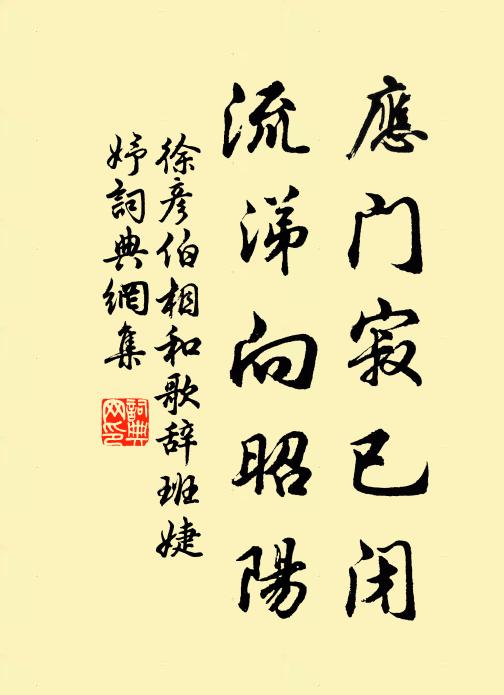 應門寂已閉
流涕向昭陽
徐彦伯相和歌辞班婕
妤詞典網集
詞典
网印